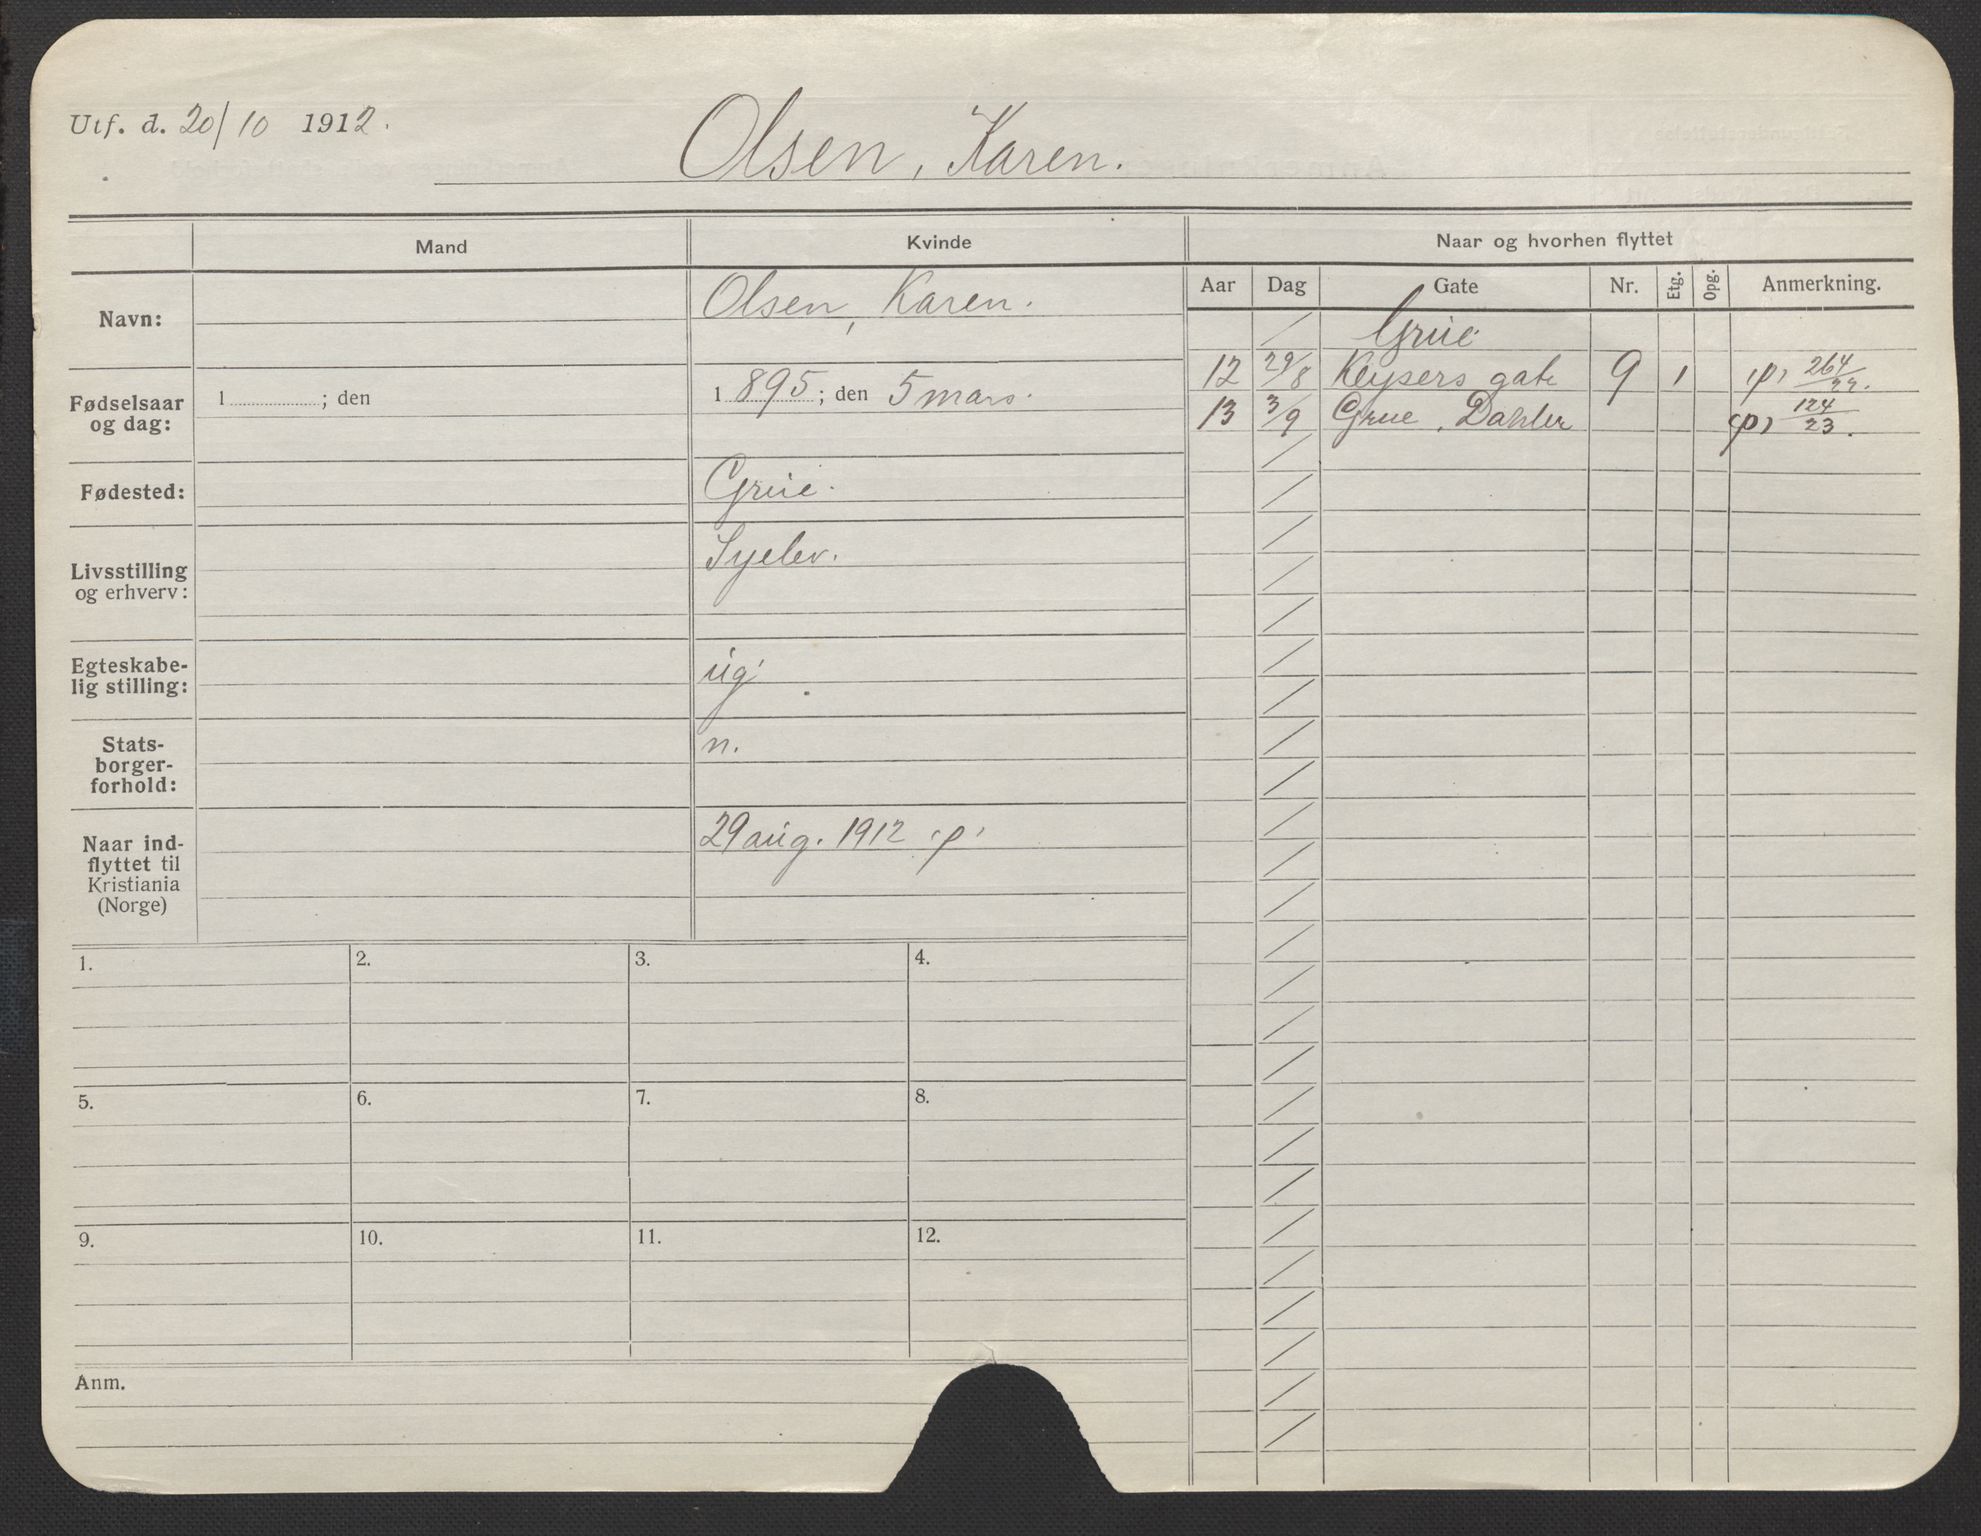 Utf. d. 20/10 1912.
Olsen, Karen.
Mand
Kvinde
Naar og hvorhen flyttet
Aar Dag Gate Nr. Etg. Opg. Anmerkning.
Navn:
Olsen, Karen.
Grue
12 29/8 Keysers gate 9 1 (p) 264/22.
13 3/9 Grue, Dahler (p) 124/23.
Fødselsaar
og dag:
1 ; den
1 895 ; den 5 mars.
Fødested:
Grue.
Livsstilling
og erhverv:
Syelev.
Egteskabe-
lig stilling:
ug
Stats-
borger-
forhold:
n.
Naar ind-
flyttet til
Kristiania
(Norge)
29 aug. 1912 (p)
1. 2. 3. 4.
5. 6. 7. 8.
9. 10. 11. 12.
Anm.